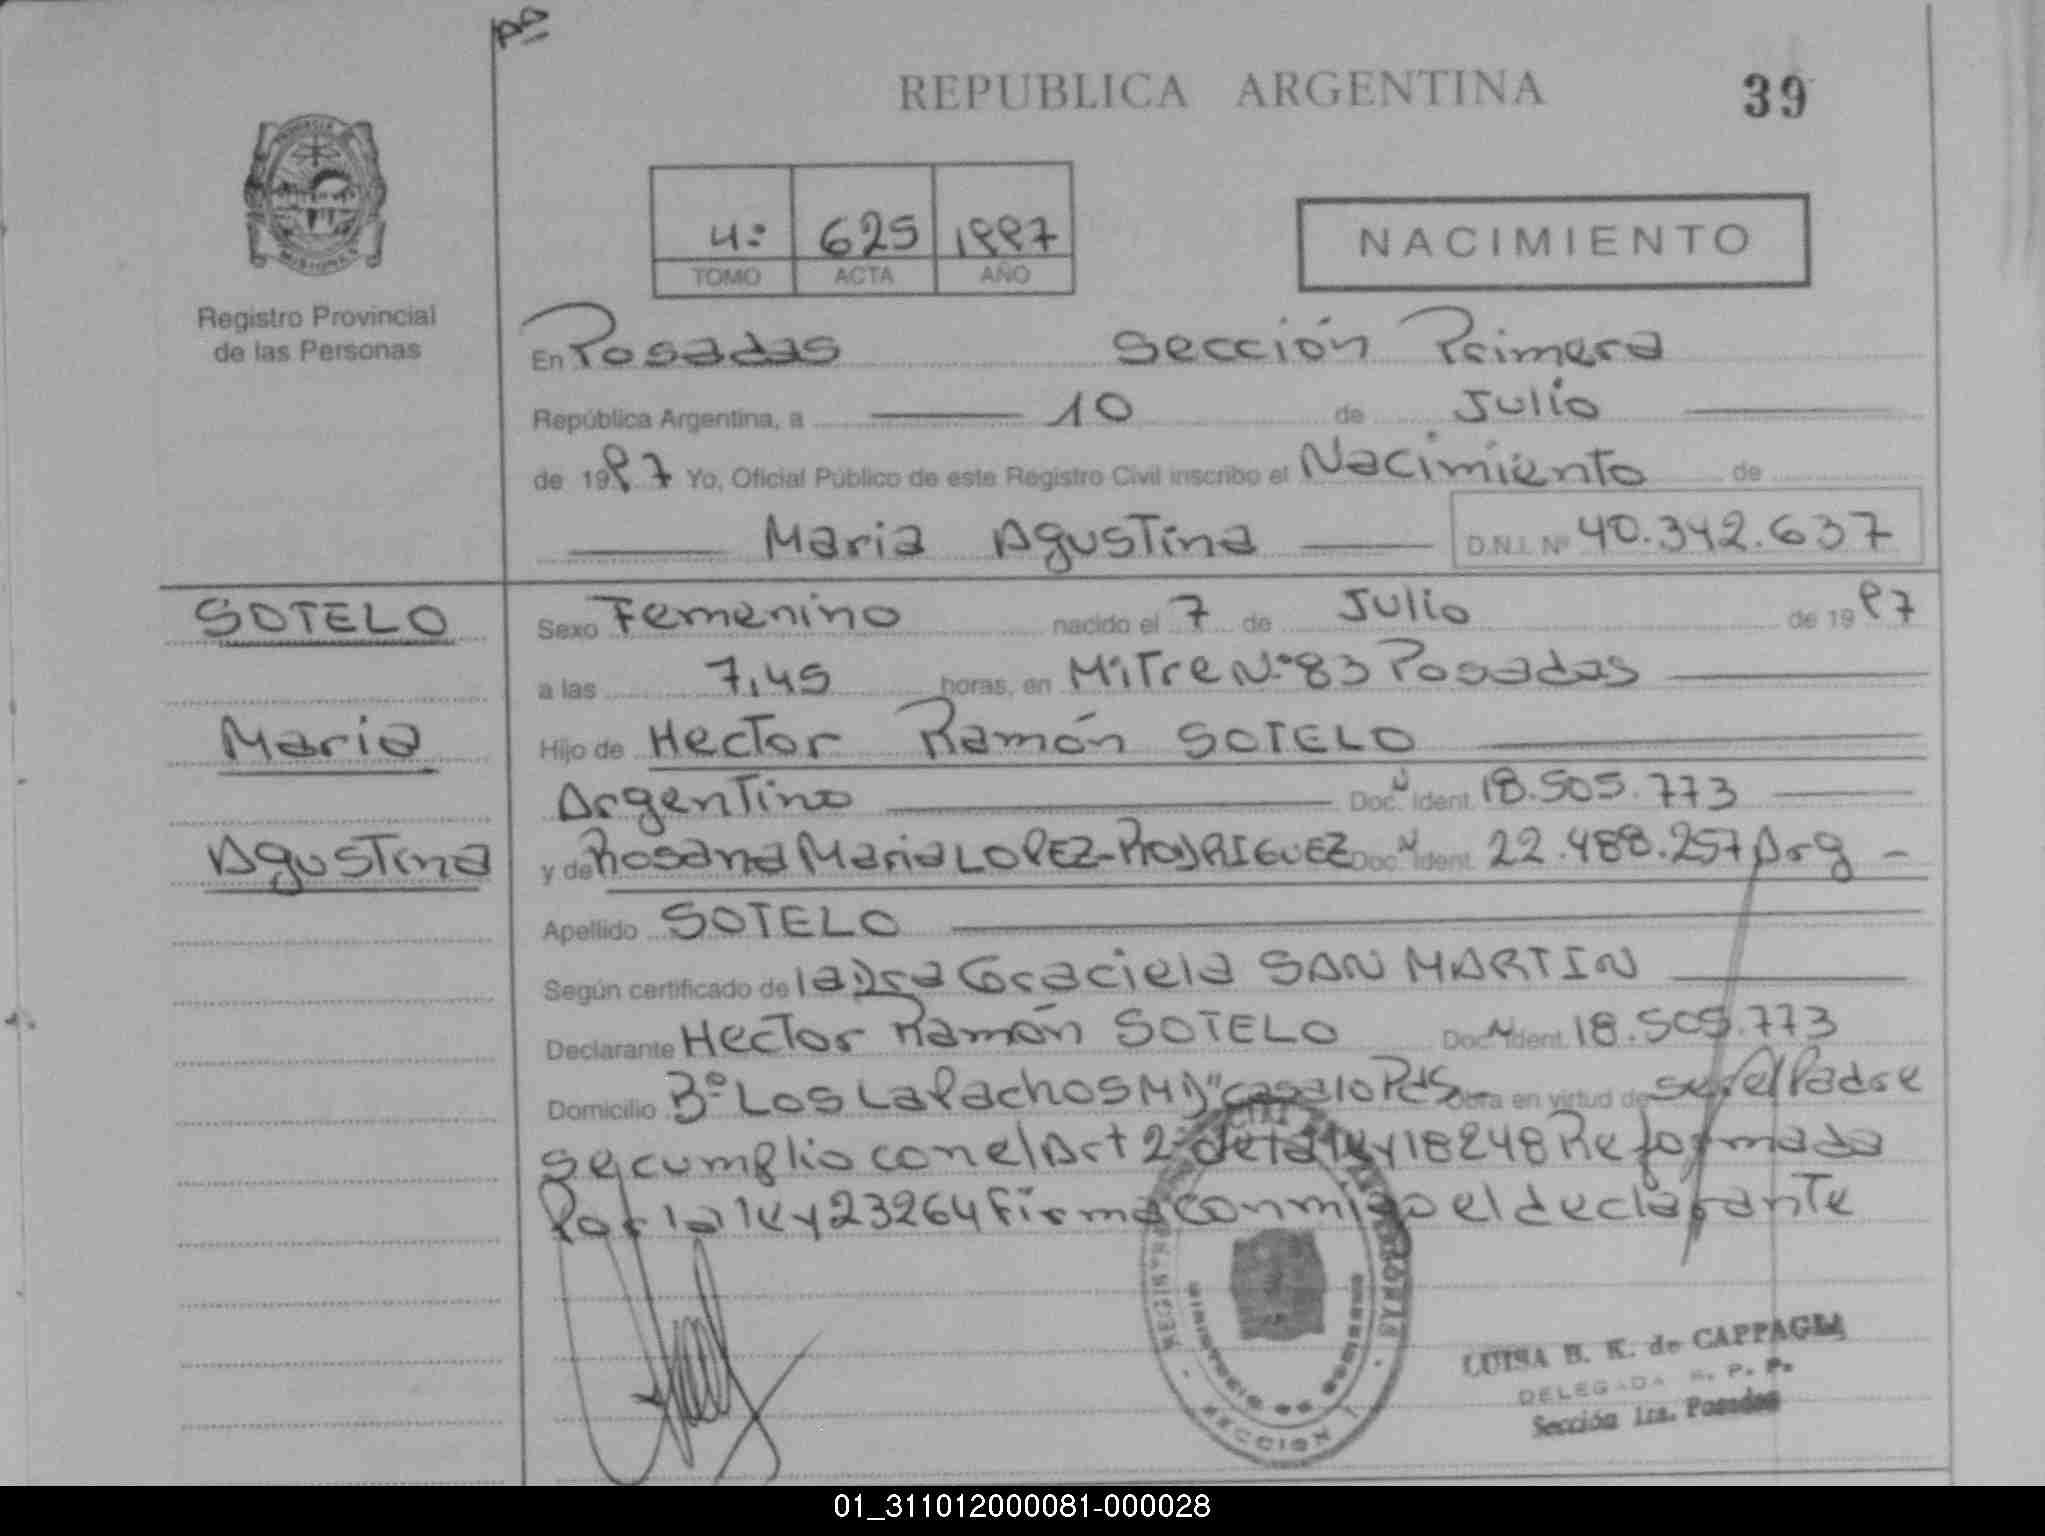 REPUBLICA ARGENTINA
39
PROVINCIA
MISIONES
Registro Provincial
de las Personas
4º 625 1997
TOMO ACTA AÑO
NACIMIENTO
En Posadas Sección Primera
República Argentina, a 10 de Julio
de 1997 Yo, Oficial Público de este Registro Civil inscribo el Nacimiento de
Maria Agustina D.N.I. Nº 40.342.637
SOTELO
Maria
Agustina
Sexo Femenino nacido el 7 de Julio de 1997
a las 7,45 horas, en Mitre Nº 83 Posadas
Hijo de Hector Ramón SOTELO
Argentino Doc. N Ident. 18.505.773
y de Rosana Maria LOPEZ-RODRIGUEZ Doc. N Ident. 22.488.257 Arg -
Apellido SOTELO
Según certificado de la Dra Graciela SAN MARTIN
Declarante Hector Ramón SOTELO Doc. N Ident. 18.505.773
Domicilio Bº Los Lapachos M D" casa 10 Pdas. Obra en virtud de ser el Padre
se cumplio con el Art 2 de la ley 18248 Reformada
Por la ley 23264 firma conmigo el declarante
MINISTERIO DE GOBIERNO
SECCION 1
LUISA B. K. de CAPPAGLI
DELEGADA R. P. P.
Sección 1ra. Posadas
01_311012000081-000028